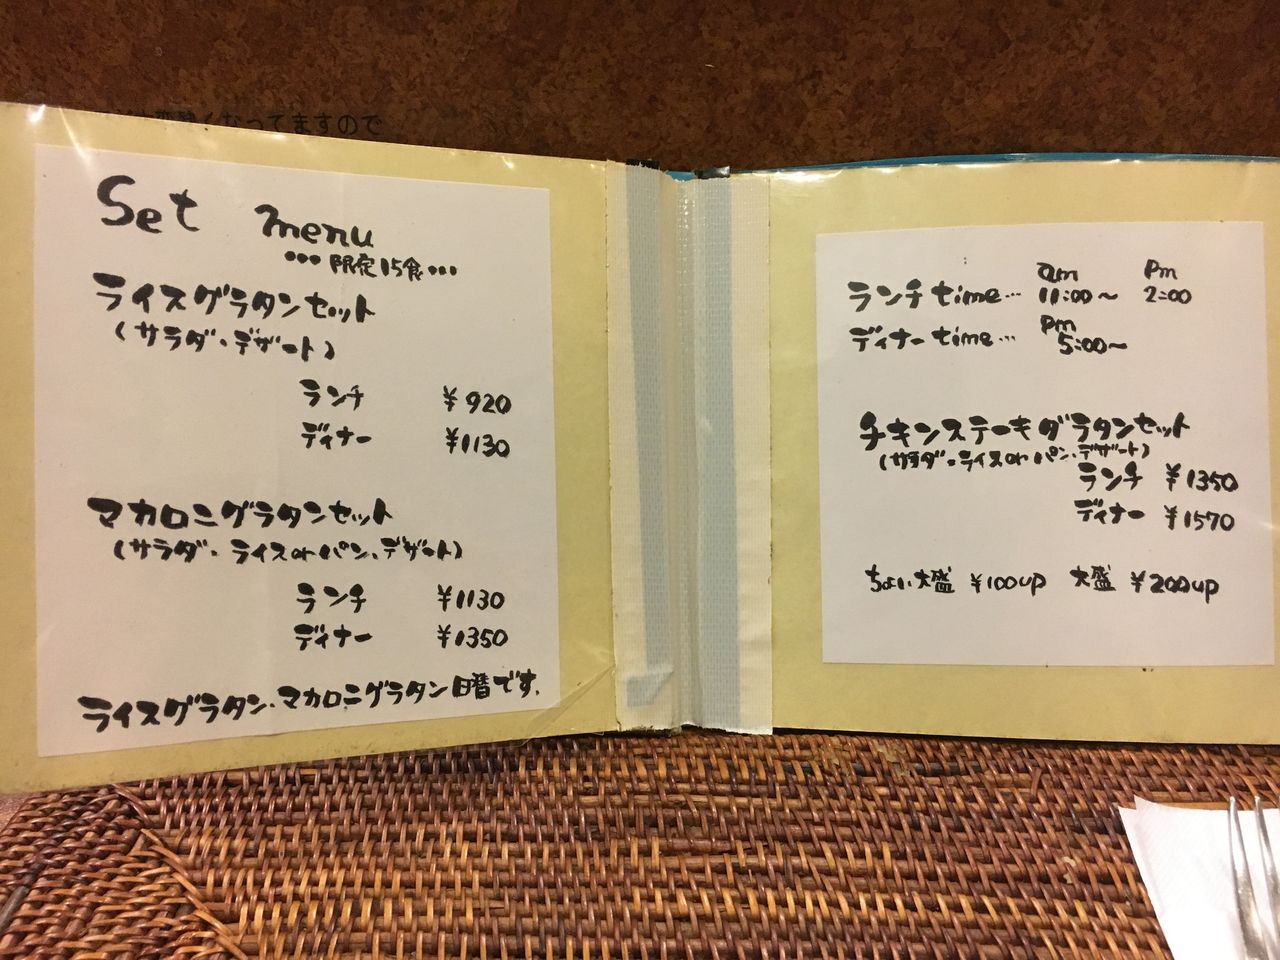 くなってますので
Set menu
•••限定15食•••
ライスグラタンセット
(サラダ・デザート)
ランチ ¥920
ディナー ¥1130
マカロニグラタンセット
(サラダ・ライスorパン、デザート)
ランチ ¥1130
ディナー ¥1350
ライスグラタン・マカロニグラタン日替です.
am pm
ランチtime… 11:00～ 2:00
pm
ディナーtime… 5:00～
チキンステーキグラタンセット
(サラダ・ライスorパン、デザート)
ランチ ¥1350
ディナー ¥1570
ちょい大盛 ¥100up 大盛 ¥200up